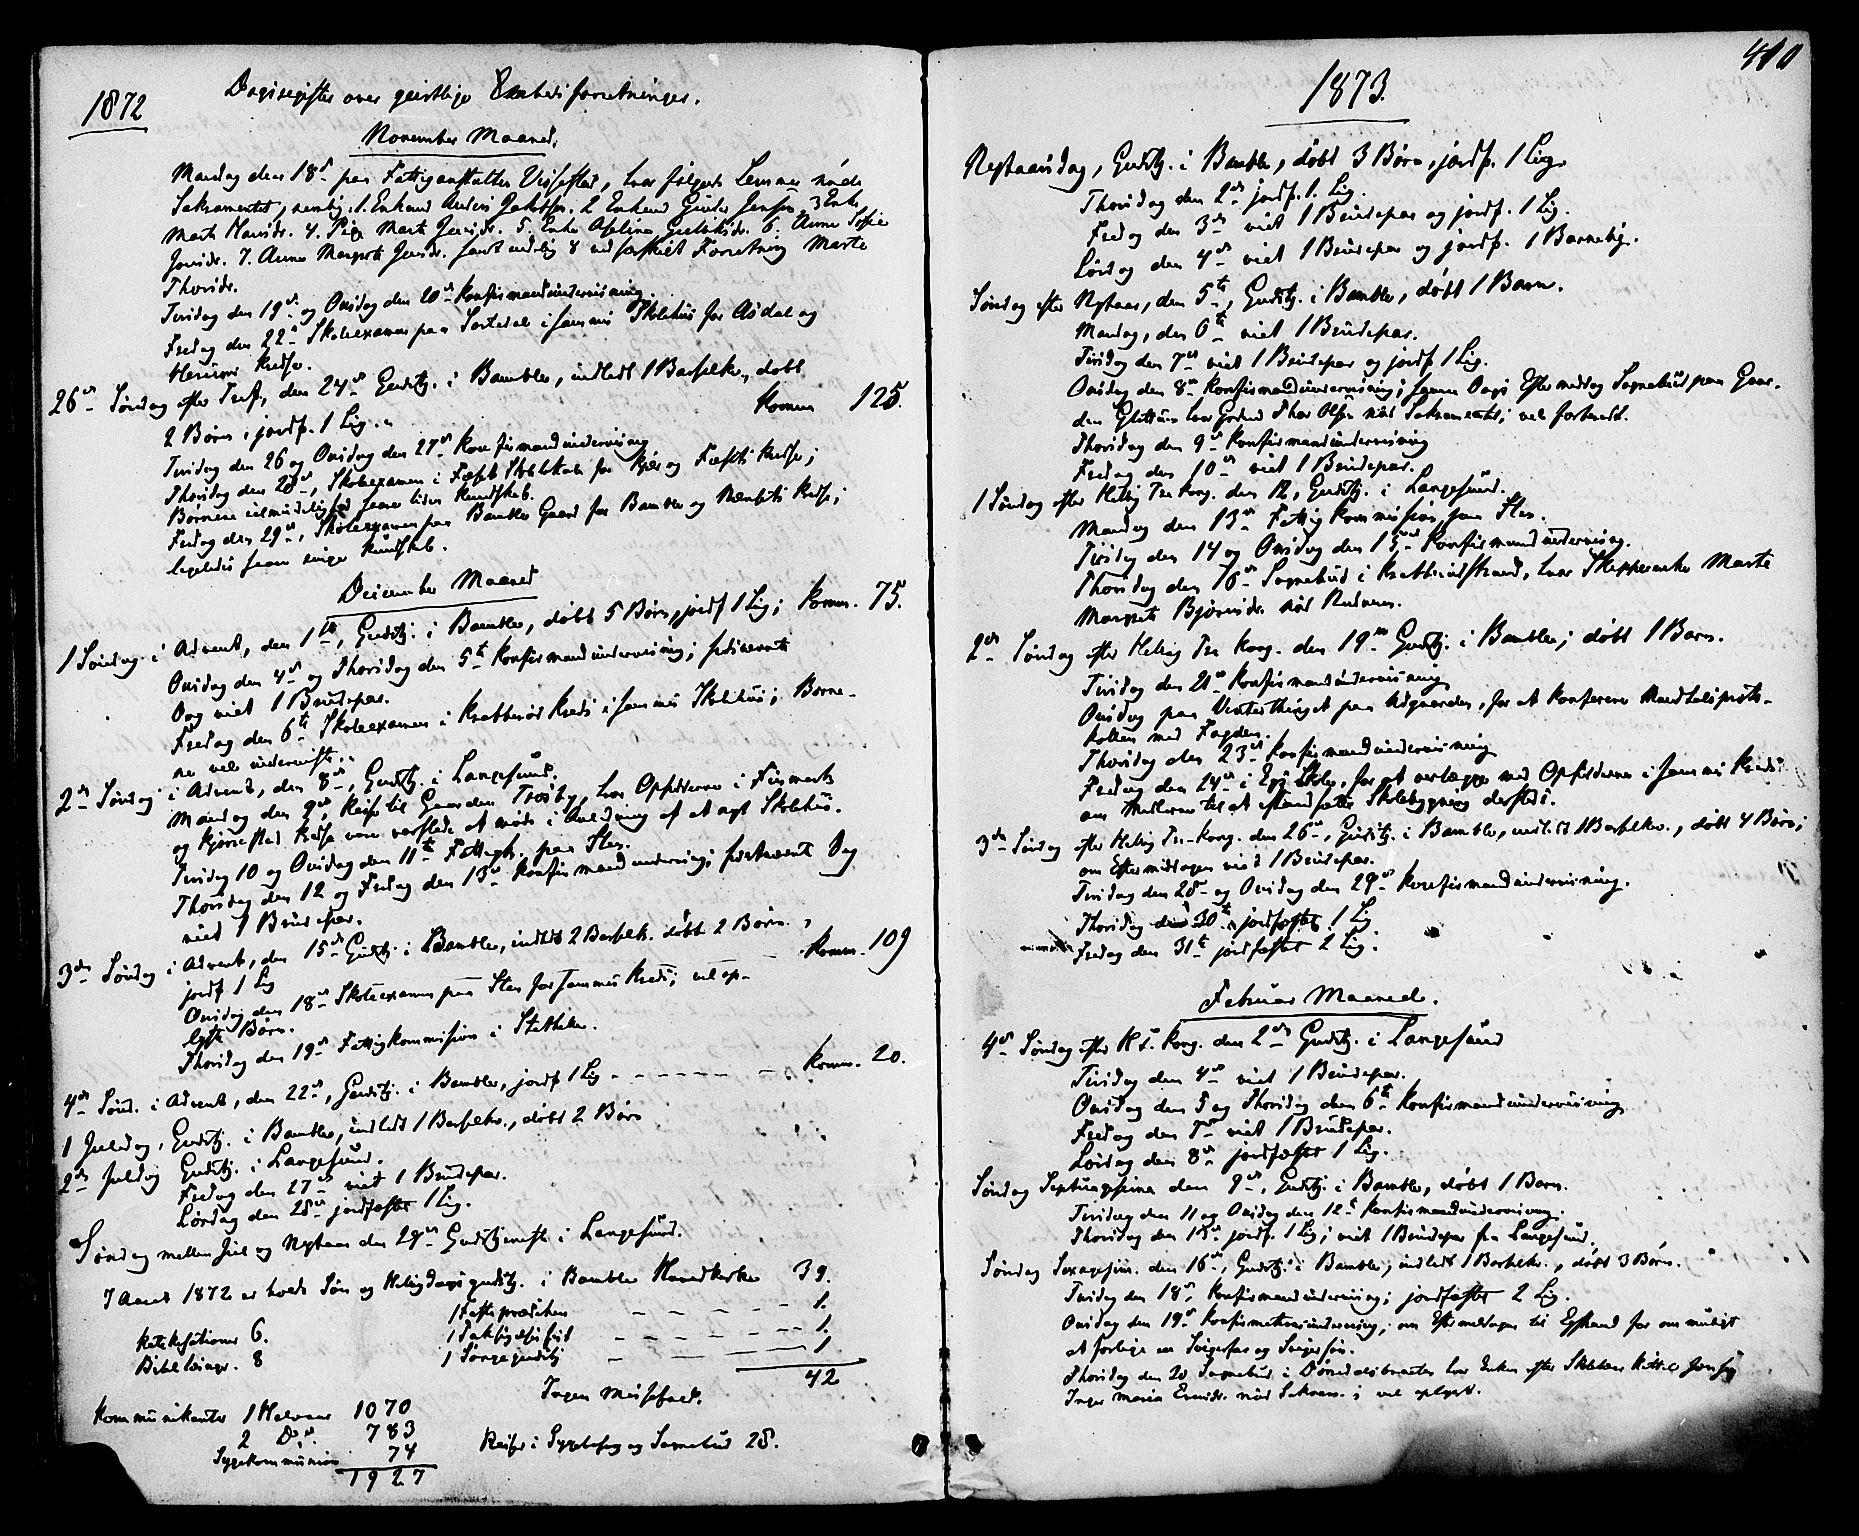 1872
Dagregister over geistlige Embedsforretninger.
November Maaned.
Mandag den 18de paa Fattiganstalten Vissestad, hvor følgende Lemmer nøde
Sakramentet, nemlig: 1. Enkemd Anders Jakobsen. 2 Enkemd Gunder Jensen, 3 Enke
Marte Hansdr. 4. Pige Marte Jensdr. 5. Enke Asseline 6. Anne Sofie
Jonsdr. 7. Anne Margrete Jensdr. samt endelig 8 ved særskilt Forretning Marte
Thorsdr.
Tirsdag den 19de og Onsdag den 20de Konfirmandundervisning
Fredag den 22de Skoleexamen paa i sammes Skolehus for Aasdal og
Kredse.
26de Søndag efter Tref, den 24de Gudstj. i Bamble, indledt 1 Barselkv., døbt
2 Børn, jordf. 1 Lig. Komm 125.
Tirsdag den 26 og Onsdag den 27de Konfirmandundervisning
Thorsdag den 28de, Skoleexamen i Skolelokale for og Kredse;
Børnene liden Kundskab.
Fredag den 29de, Skoleexamen paa Bamble Gaard for Bamble og Kredse;
ligeledes Kundskab.
December Maaned
1 Søndag i Advent, den 1te, Gudstj. i Bamble, døbt 5 Børn, jordf 1 Lig; Komm. 75.
Onsdag den 4de og Thorsdag den 5te Konfirmandundervisning; sidstnævnte
Dag viet 1 Brudepar.
Fredag den 6te Skoleexamen i Krabberød Kreds i sammes Skolehus; Børne-
ne vel underviste.
2de Søndag i Advent, den 8de, Gudstj. i Langesund.
Mandag den 9de, Reise til Gaarden Trosby, hvor Opsidderne i Findmark
og Kjørrestad Kredse vare varslede at møde i Anledning af et nyt Skolehus.
Tirsdag 10 og Onsdag den 11te Fattigk. paa Sten.
Thorsdag den 12 og Fredag den 13de Konfirmandundervisning; førstnævnte Dag
viet 1 Brudepar.
3die Søndag i Advent, den 15de Gudstj. i Bamble, indledt 2 Barselk. døbt 2 Børn,
jordf 1 Lig Komm. 109
Onsdag den 18de Skoleexamen paa Sten for sammes Kreds; vel op-
lyste Børn.
Thorsdag den 19de Fattigkommission i Stathelle.
4de Sønd. i Advent, den 22de, Gudstj. i Bamble, jordf 1 Lig - - - - - - Komm. 20.
1 Juledag, Gudstj. i Bamble, indledt 1 Barselkv., døbt 2 Børn
2de Juledag Gudstj. i Langesund.
Fredag den 27de viet 1 Brudepar.
Lørdag den 28de jordfæstet 1 Lig.
Søndag mellem Jul og Nytaar den 29de Gudstjeneste i Langesund.
I Aaret 1872 er holdt Søn og Helligdags gudstj. i Bamble Hovedkirke 39.
1 Fasteprædiken - - - - 1.
Katekisationer 6. 1 Takkesigelsesfest - - - - 1.
Bibellæsninger. 8 1 Sørgegudstj - - - 1
42
Ingen Messefald.
Kommunikanter 1 Halvaar 1070
2 Do 783 Reiser i Sygebesøg og Sognebud 28.
Sygekommunion 74
1927
410
1873.
Nytaarsdag, Gudstj. i Bamble, døbt 3 Børn, jordf. 1 Lig.
Thorsdag den 2de jordf. 1. Lig.
Fredag den 3de viet 1 Brudepar og jordf. 1 Lig.
Lørdag den 4de viet 1 Brudepar og jordf. 1 Barnelig.
Søndag efter Nytaar, den 5te, Gudstj. i Bamble, døbt 1 Barn.
Mandag, den 6te viet 1 Brudepar.
Tirsdag den 7de viet 1 Brudepar og jordf 1 Lig.
Onsdag den 8de Konfirmandundervisning; samme Dags Eftermiddag Sognebud paa Gaar-
den hvor Thor Olsen nød Sakramentet; vel forberedt.
Thorsdag den 9de Konfirmandundervisning
Fredag den 10de viet 1 Brudepar.
1 Søndag efter Hellig Tre Kong. den 12, Gudstj. i Langesund.
Mandag den 13de Fattigkommission paa Sten.
Tirsdag den 14 og Onsdag den 15de Konfirmandundervisning.
Thorsdag den 16de Sognebud i Krabberødstrand, hvor Skipperenke Marte
Margrete Bjørnsdr. nød Nadveren.
2den Søndag efter Hellig Tre Kong. den 19de Gudstj. i Bamble; døbt 1 Barn.
Tirsdag den 21de Konfirmandundervisning
Onsdag paa Vintertinget paa Udgaarden, for at konferere Mandtalsproto-
kollen med Fogden.
Thorsdag den 23de Konfirmandundervisning
Fredag den 24de i Skole, for at overlægge med Opsidderne i sammes Kreds
om Midlerne til at istandsætte Skolebygningen dersteds.
3die Søndag efter Hellig Tre-Kong. den 26de, Gudstj. i Bamble, indledt 1 Barselkv., døbt 4 Børn;
om Eftermiddagen viet 1 Brudepar.
Tirsdag den 28de og Onsdag den 29de Konfirmandundervisning.
Thorsdag den 30te jordfæstet 1 Lig
Fredag den 31te jordfæstet 2 Lig.
Februar Maaned.
4de Søndag efter H. 3. Kong. den 2den Gudstj. i Langesund
Tirsdag den 4de viet 1 Brudepar.
Onsdag den 5 og Thorsdag den 6te Konfirmandundervisning
Fredag den 7de viet 1 Brudepar.
Lørdag den 8de jordfæstet 1 Lig.
Søndag Septuagesima den 9de, Gudstj. i Bamble, døbt 1 Barn.
Tirsdag den 11 og Onsdag den 12te Konfirmandundervisning.
Thorsdag den 13de jordf. 1 Lig; viet 1 Brudepar fra Langesund.
Søndag Sexagesim. den 16de, Gudstj. i Bamble, indledt 1 Barselkv., døbt 3 Børn.
Tirsdag den 18de, Konfirmandundervisning; jordfæstet 2 Lig.
Onsdag den 19de Konfirmationsundervisning; om Eftermiddagen til for om muligt
at forlige en og
Thorsdag den 20 Sognebud i hvor Enken efter Skolelærer Kittil Jensen
Inger Maria nød Sakram.; vel oplyst.